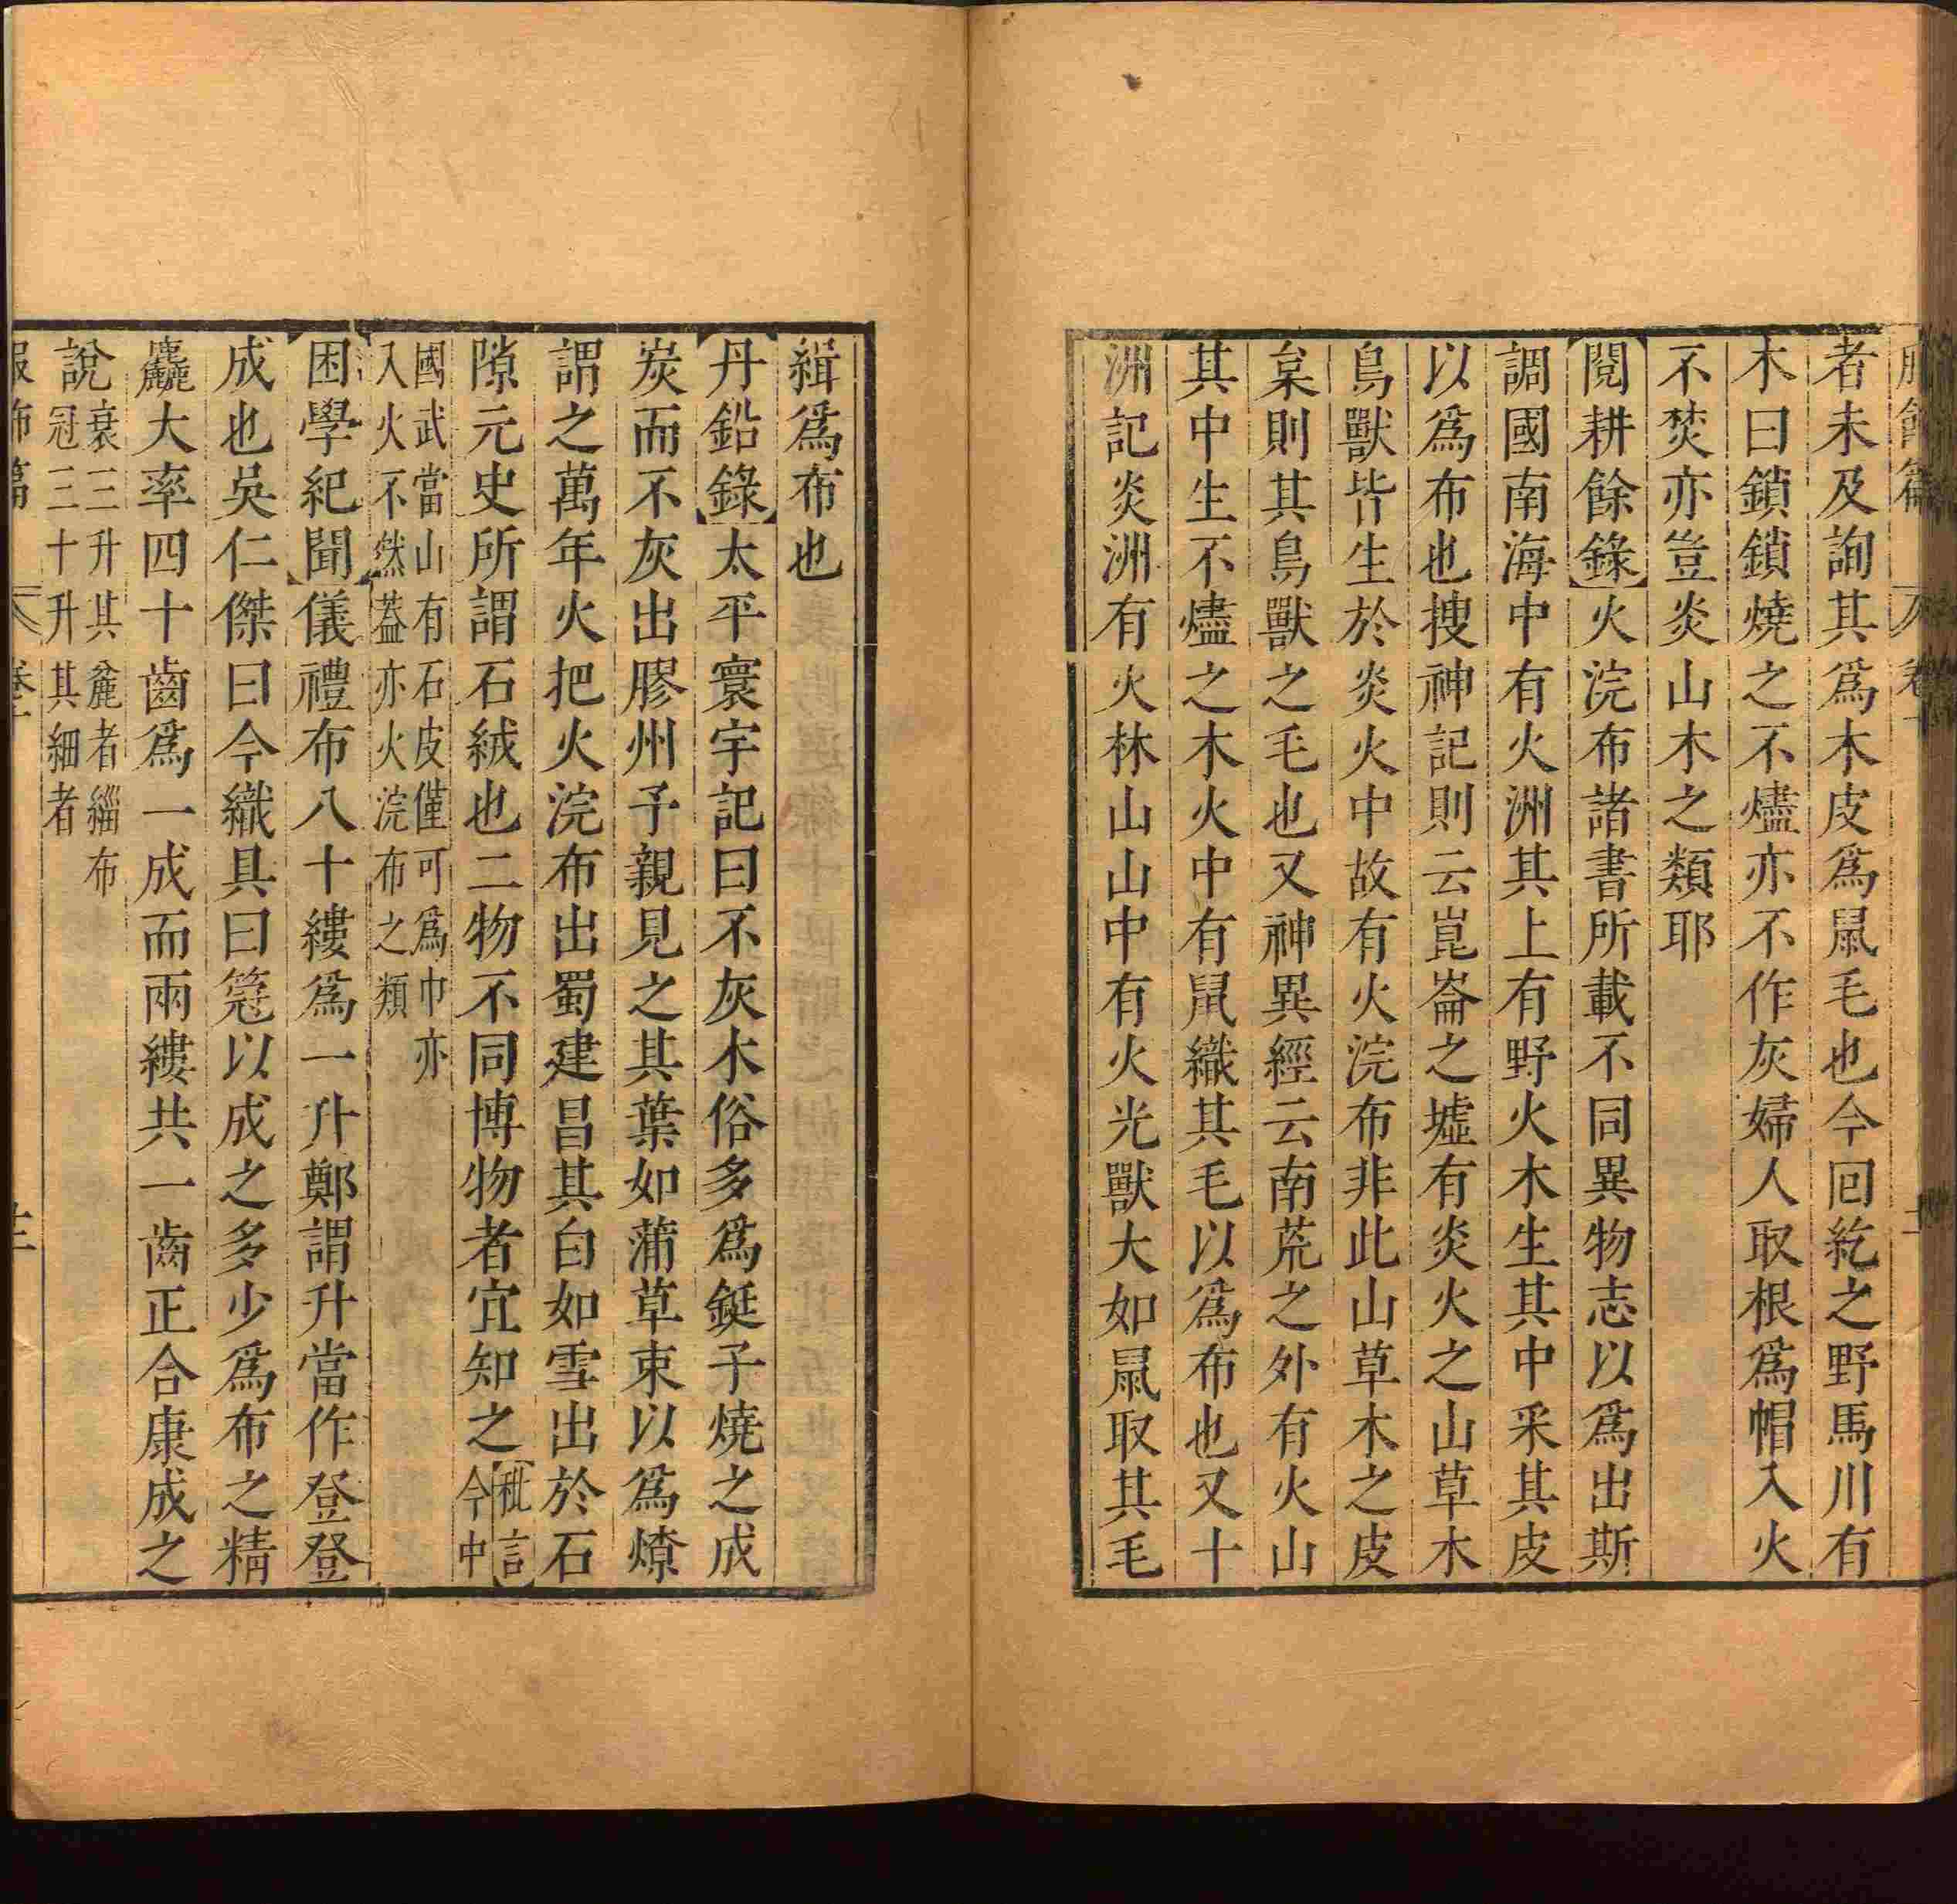 者未及詢其爲木皮爲鼠毛也今回紇之野馬川有
木曰鎖鎖燒之不燼亦不作灰婦人取根爲帽入火
不焚亦豈炎山木之類耶
【閱耕餘錄】火浣布諸書所載不同異物志以爲出斯
調國南海中有火洲其上有野火木生其中采其皮
以爲布也搜神記則云崑崙之墟有炎火之山草木
鳥獸皆生於炎火中故有火浣布非此山草木之皮
枲則其鳥獸之毛也又神異經云南荒之外有火山
其中生不燼之木火中有鼠織其毛以爲布也又十
洲記炎洲有火林山山中有火光獸大如鼠取其毛
緝爲布也
【丹鉛錄】太平寰宇記曰不灰木俗多爲鋌子燒之成
炭而不灰出膠州予親見之其葉如蒲草束以爲燎
謂之萬年火把火浣布出蜀建昌其白如雪出於石
隙元史所謂石絨也二物不同博物者宜知之【秕言】今中
國武當山有石皮僅可爲巾亦
入火不然蓋亦火浣布之類
【困學紀聞】儀禮布八十縷爲一升鄭謂升當作登登
成也吳仁傑曰今織具曰簆以成之多少爲布之精
麤大率四十齒爲一成而兩縷共一齒正合康成之
說衰三升其麄者緇布
冠三十升其細者
服飾篇 卷二